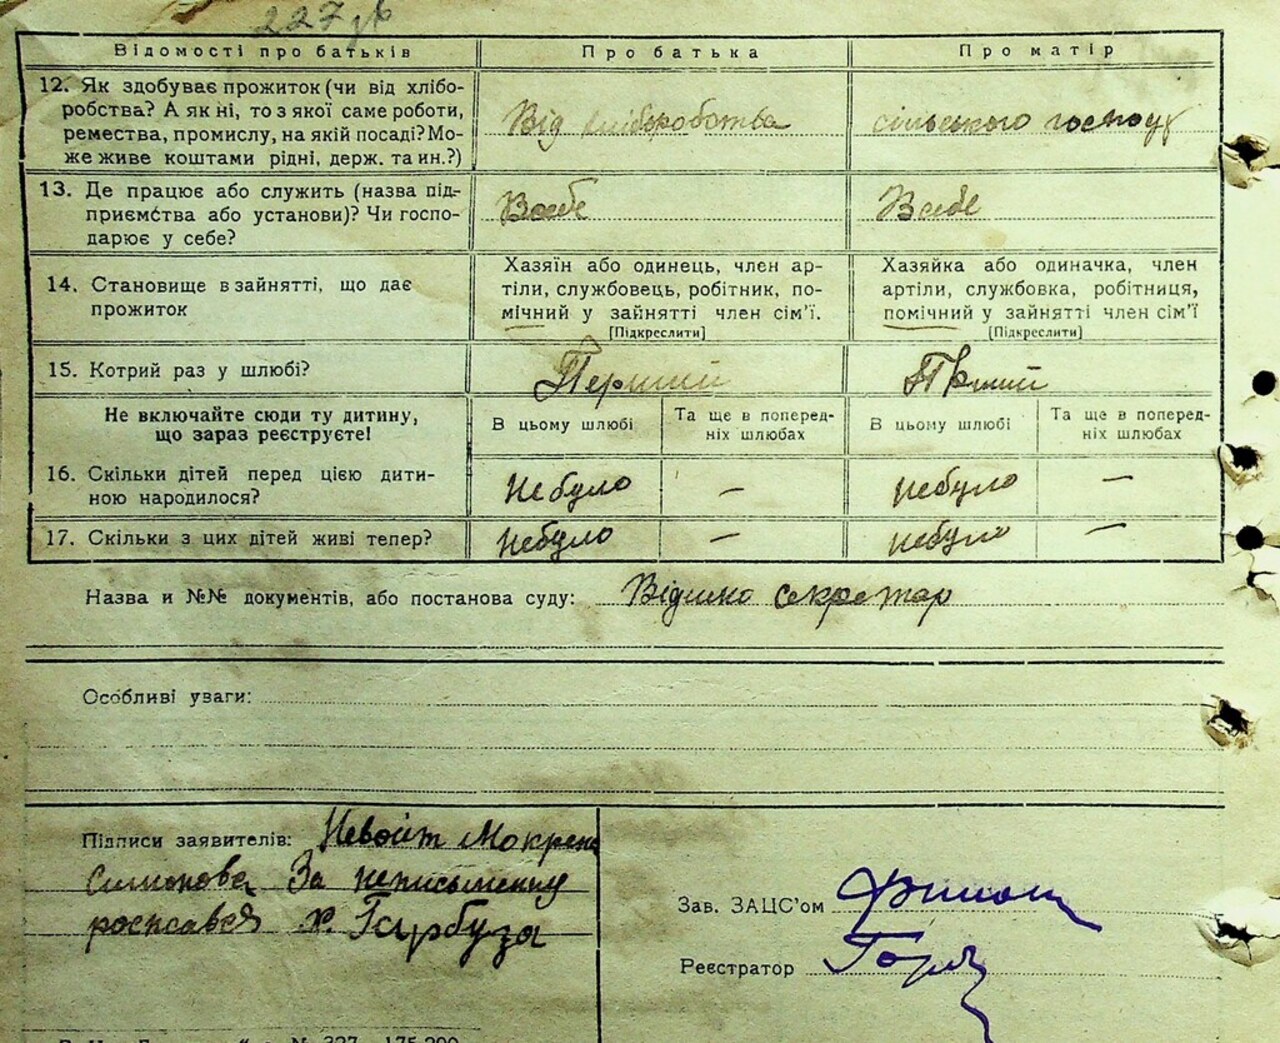 227 зв
Відомості про батьків Про батька Про матір
12. Як здобуває прожиток (чи від хлібо-
робства? А як ні, то з якої саме роботи,
ремества, промислу, на якій посаді? Мо-
же живе коштами рідні, держ. та ин.?)
Від хліборобства сільського господ
13. Де працює або служить (назва під-
приємства або установи)? Чи госпо-
дарює у себе?
Всебе Всебе
14. Становище в занятті, що дає
прожиток
Хазяїн або одинець, член ар-
тіли, службовець, робітник, по-
мічний у зайнятті член сім'ї.
[Підкреслити]
Хазяйка або одиначка, член
артіли, службовка, робітниця,
помічний у зайнятті член сім'ї
[Підкреслити]
15. Котрий раз у шлюбі? Перший Перший
Не включайте сюди ту дитину,
що зараз реєструєте!
В цьому шлюбі
Та ще в поперед-
ніх шлюбах
В цьому шлюбі
Та ще в поперед-
ніх шлюбах
16. Скільки дітей перед цією дити-
ною народилося?
Небуло — небуло —
17. Скільки з цих дітей живі тепер? Небуло — небуло —
Назва и №№ документів, або постанова суду: Відомо секретар
Особливі уваги:
Підписи заявителів: Невойт Мокрена
Симонова За неписьменну
росписався х. Гарбуза
Зав. ЗАЦС'ом
Реєстратор
№ 327 175.200